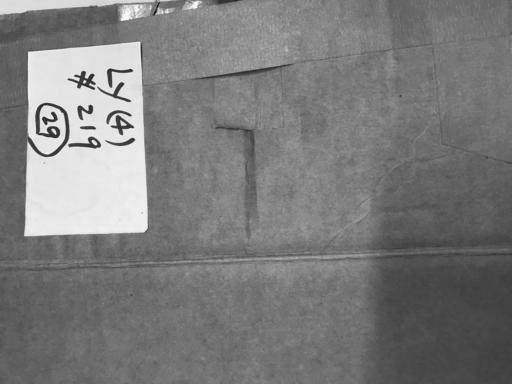 LY (4)
# 219
29